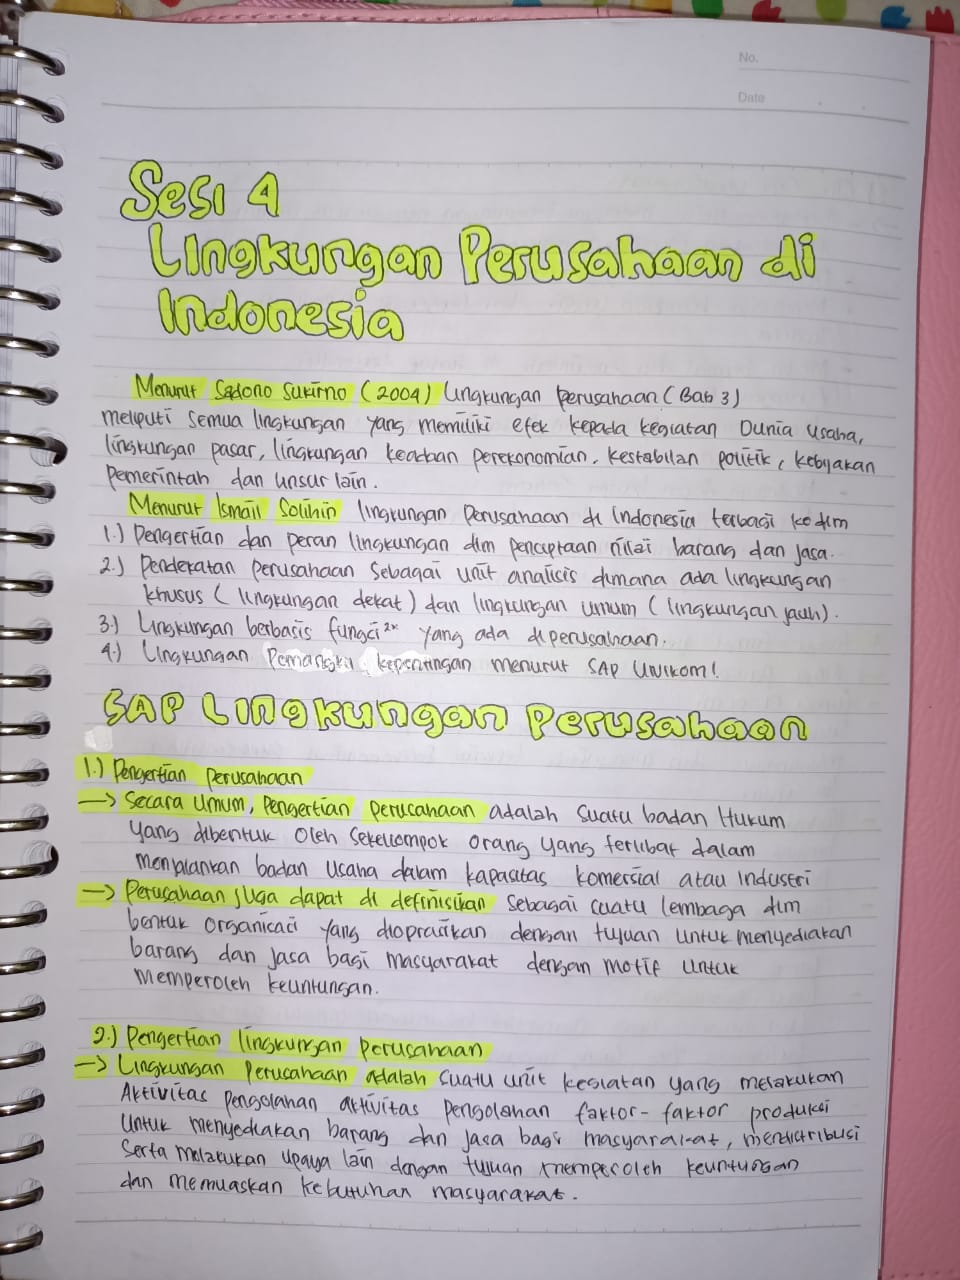 No.
Date
Sesi 4
Lingkungan Perusahaan di
Indonesia
Menurut Sadono Sukirno (2004) lingkungan perusahaan (Bab 3)
meliputi semua lingkungan yang memiliki efek kepada kegiatan Dunia Usaha,
lingkungan pasar, lingkungan keadaan perekonomian, kestabilan politik, kebijakan
Pemerintah dan unsur lain.
Menurut Ismail Solihin lingkungan Perusahaan di Indonesia terbagi ke dlm
1.) Pengertian dan peran lingkungan dlm penciptaan nilai barang dan jasa.
2.) Pendekatan perusahaan sebagai unit analisis dimana ada lingkungan
khusus (lingkungan dekat) dan lingkungan umum (lingkungan jauh).
3.) Lingkungan berbasis fungsi²ⁿ yang ada diperusahaan.
4.) Lingkungan Pemangku kepentingan menurut SAP UNIKOM!
SAP Lingkungan Perusahaan
1.) Pengertian perusahaan
→ Secara Umum, Pengertian perusahaan adalah Suatu badan Hukum
Yang dibentuk oleh sekelompok orang yang terlibat dalam
menjalankan badan usaha dalam kapasitas komersial atau Industri
→ Perusahaan juga dapat di definisikan Sebagai suatu lembaga dlm
bentuk organisasi yang dioprasikan dengan tujuan untuk menyediakan
barang dan Jasa bagi masyarakat dengan motif untuk
memperoleh keuntungan.
2.) Pengertian lingkungan perusahaan
→ Lingkungan Perusahaan adalah suatu unit kegiatan yang melakukan
Aktivitas pengolahan aktivitas pengolahan faktor-faktor produksi
Untuk menyediakan barang dan jasa bagi masyarakat, mendistribusi
Serta melakukan upaya lain dengan tujuan memperoleh keuntungan
dan memuaskan kebutuhan masyarakat.